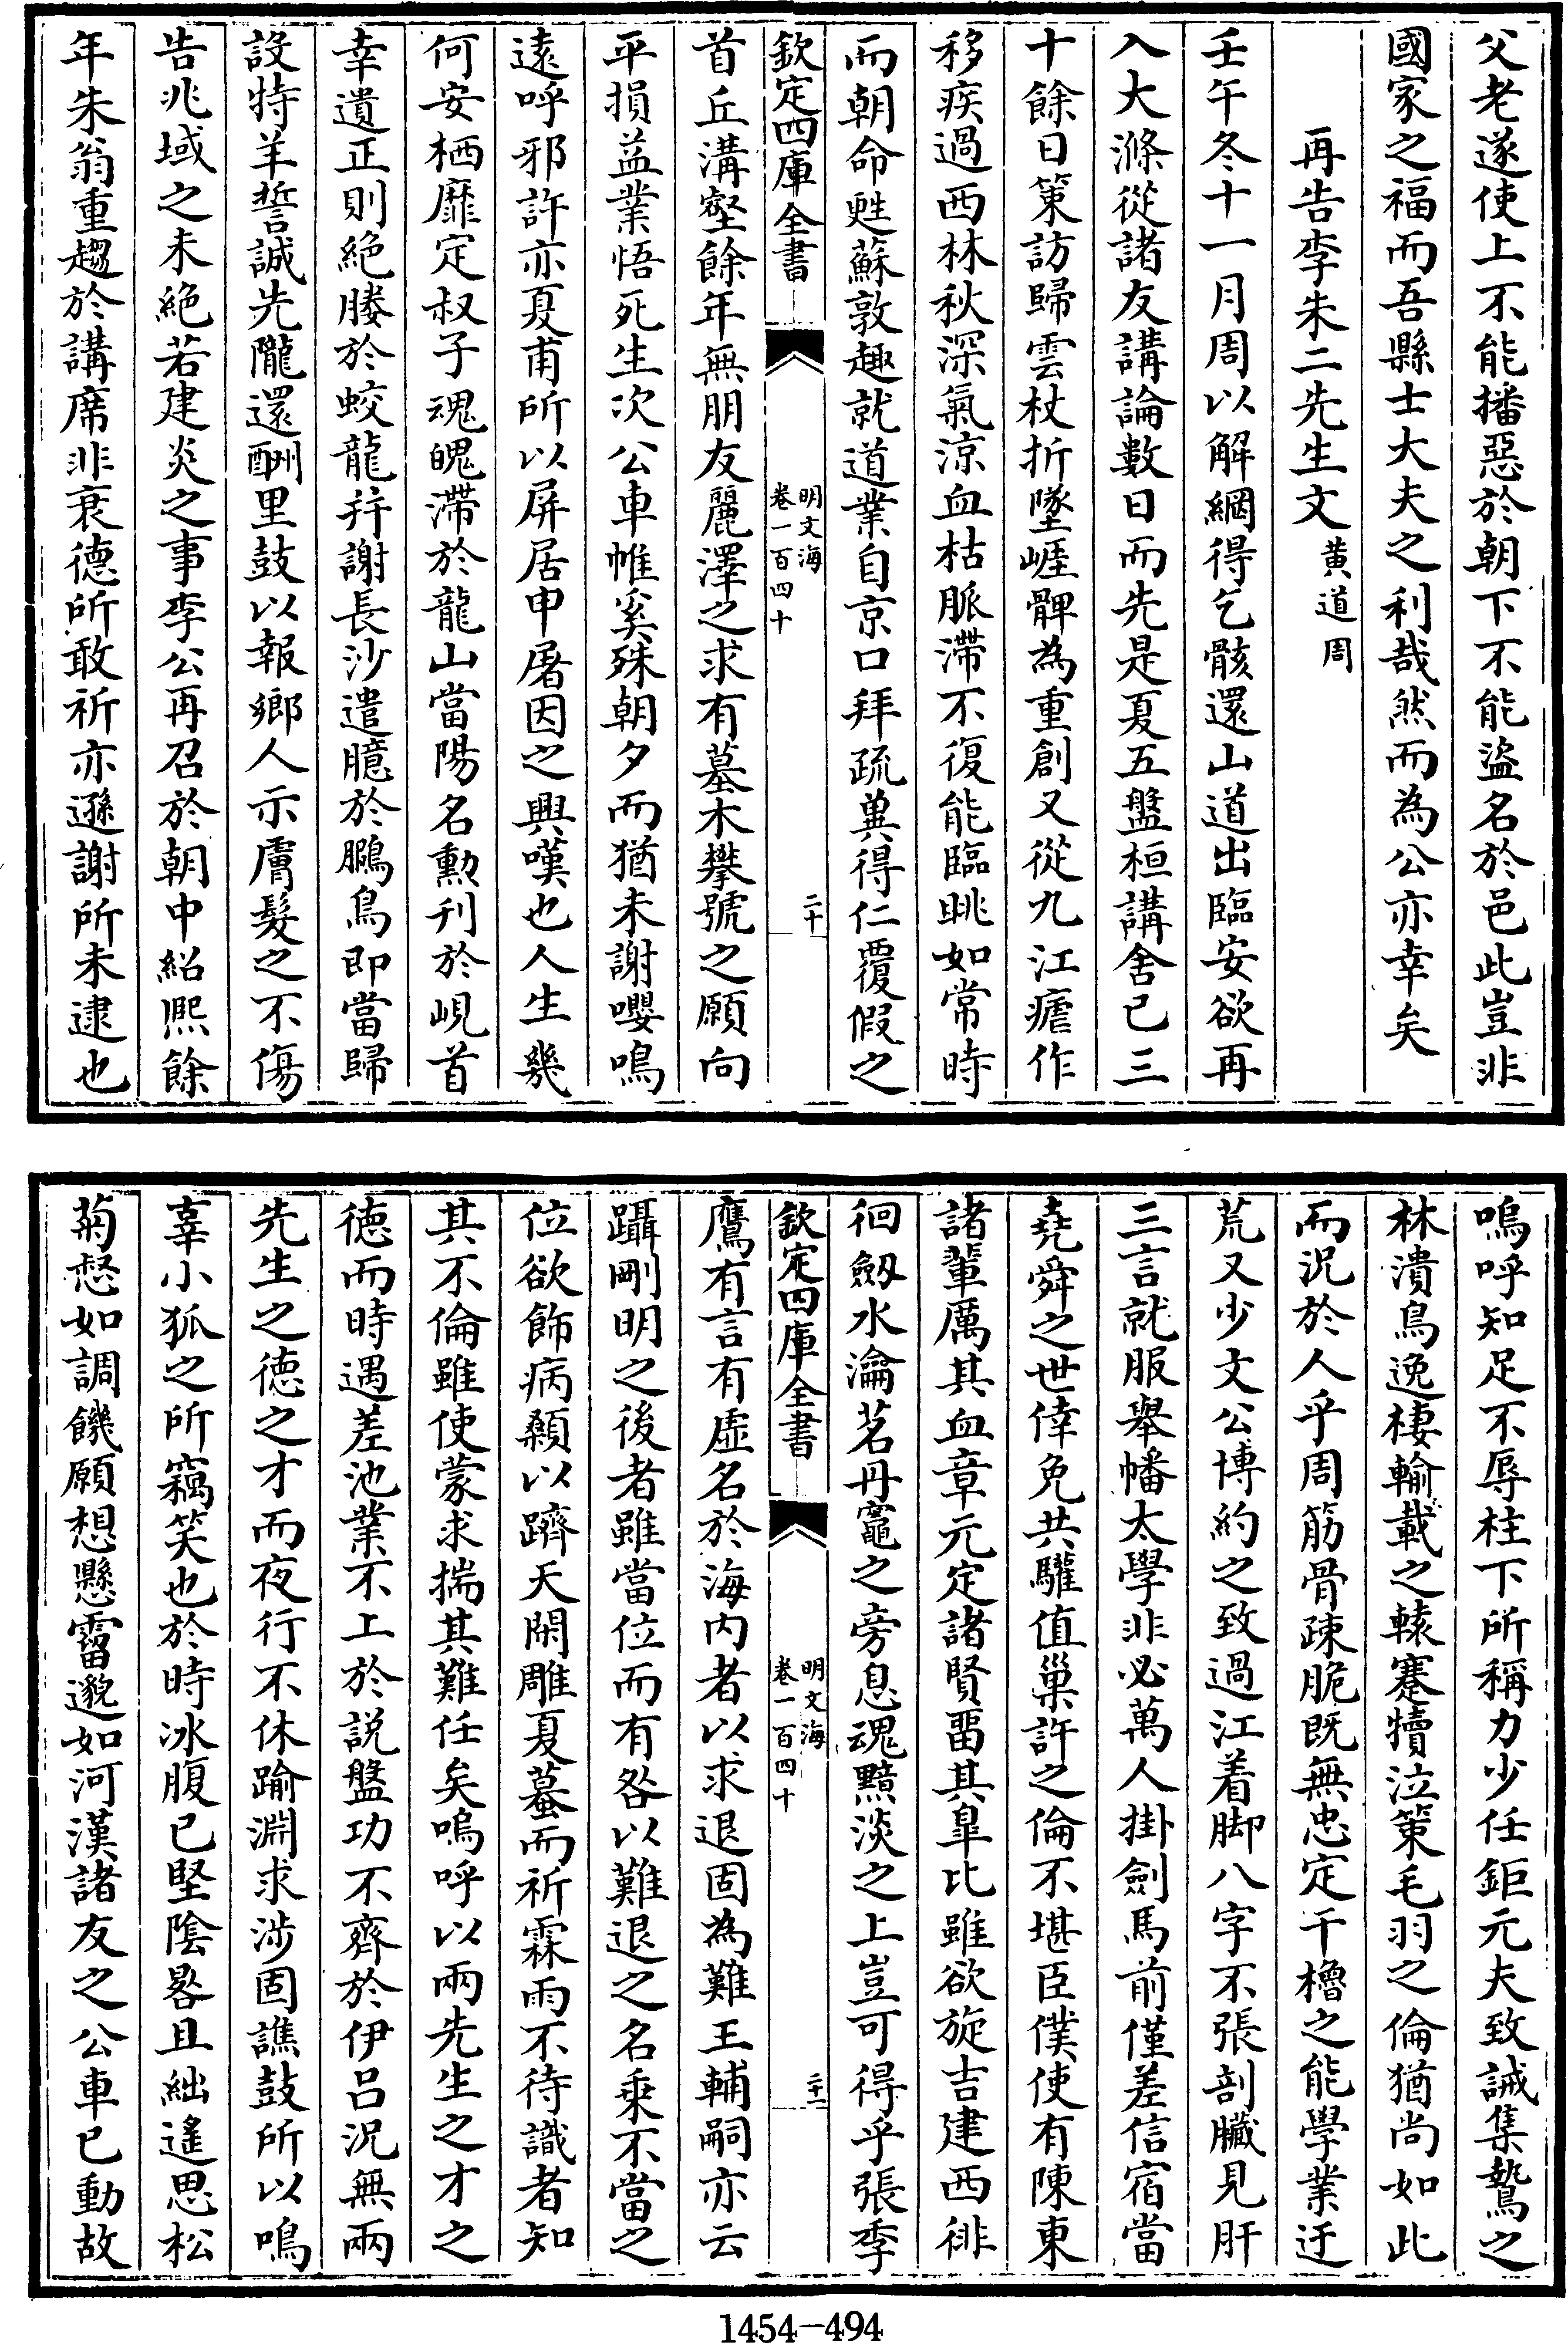 父老遂使上不能播惡於朝下不能盜名於邑此豈非
國家之福而吾縣士大夫之利哉然而為公亦幸矣
再告李朱二先生文黃道周
壬午冬十一月周以解網得乞骸還山道出臨安欲再
入大滌從諸友講論數日而先是夏五盤桓講舍已三
十餘日策訪歸雲杖折墜崕髀為重創又從九江瘧作
移疾過西林秋深氣涼血枯脈滯不復能臨眺如常時
而朝命甦蘇敦趣就道業自京口拜疏冀得仁覆假之
欽定四庫全書
明文海
卷一百四十
二十
首丘溝壑餘年無朋友麗澤之求有墓木攀號之願向
平損益業悟死生次公車帷奚殊朝夕而猶未謝嚶鳴
遠呼邪許亦夏甫所以屏居申屠因之興嘆也人生幾
何安栖靡定叔子魂魄滯於龍山當陽名勳刋於峴首
幸遺正則絕媵於蛟龍并謝長沙遣臆於鵩鳥即當歸
設特羊誓誠先隴還酬里鼓以報鄉人示膚髮之不傷
告兆域之未絕若建炎之事李公再召於朝中紹熙餘
年朱翁重趨於講席非衰德所敢祈亦遜謝所未逮也
嗚呼知足不辱柱下所稱力少任鉅元夫致誡集鷙之
林潰鳥逸棲輸載之轅蹇犢泣策毛羽之倫猶尚如此
而況於人乎周筋骨疎脆既無忠定干櫓之能學業迂
荒又少文公博約之致過江着脚八字不張剖臟見肝
三言就服舉幡太學非必萬人掛劍馬前僅差信宿當
堯舜之世倖免共驩值巢許之倫不堪臣僕使有陳東
諸輩厲其血章元定諸賢畱其臯比雖欲旋吉建西徘
徊劒水瀹茗丹竈之旁息魂黯淡之上豈可得乎張季
欽定四庫全書
明文海
卷一百四十
二十一
鷹有言有虛名於海内者以求退固為難王輔嗣亦云
躡剛明之後者雖當位而有咎以難退之名乘不當之
位欲飾病顙以躋天閑雕夏蟇而祈霖雨不待識者知
其不倫雖使蒙求揣其難任矣嗚呼以兩先生之才之
德而時遇差池業不上於說盤功不齊於伊呂況無兩
先生之德之才而夜行不休踰淵求涉固譙鼓所以鳴
辜小狐之所竊笑也於時冰腹已堅陰晷且絀遙思松
菊惄如調饑願想懸霤邈如河漢諸友之公車已動故
1454-494